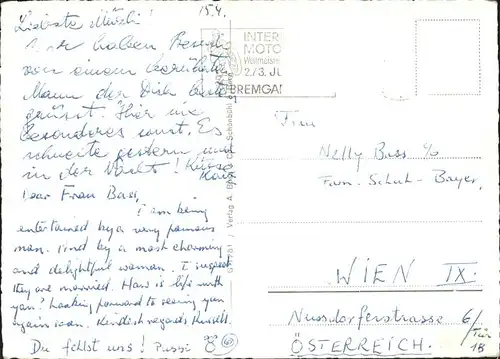 15.4.
Liebste Mürli!
Wir haben Besuch
von einem berühmten
Mann der Dich herzl.
grüsst. Hier nix
Besonderes sonst. Es
schneite gestern und
in der Nacht! Küsse
Dear Frau Bass,
I am being
entertained by a very famous
man. And by a most charming
and delightful woman. I suspect
they are married. How is life with
you? Looking forward to seeing you
again soon. Kindest regards
Du fehlst uns! Pussi
INTER
MOTO
2./3. JU
BREMGAR
Verlag A.
Schönbühl
Frau
Nelly Bass c/o
Fam. Schuh-Bayer,
WIEN IX.
Nussdorferstrasse 6/
18
ÖSTERREICH.